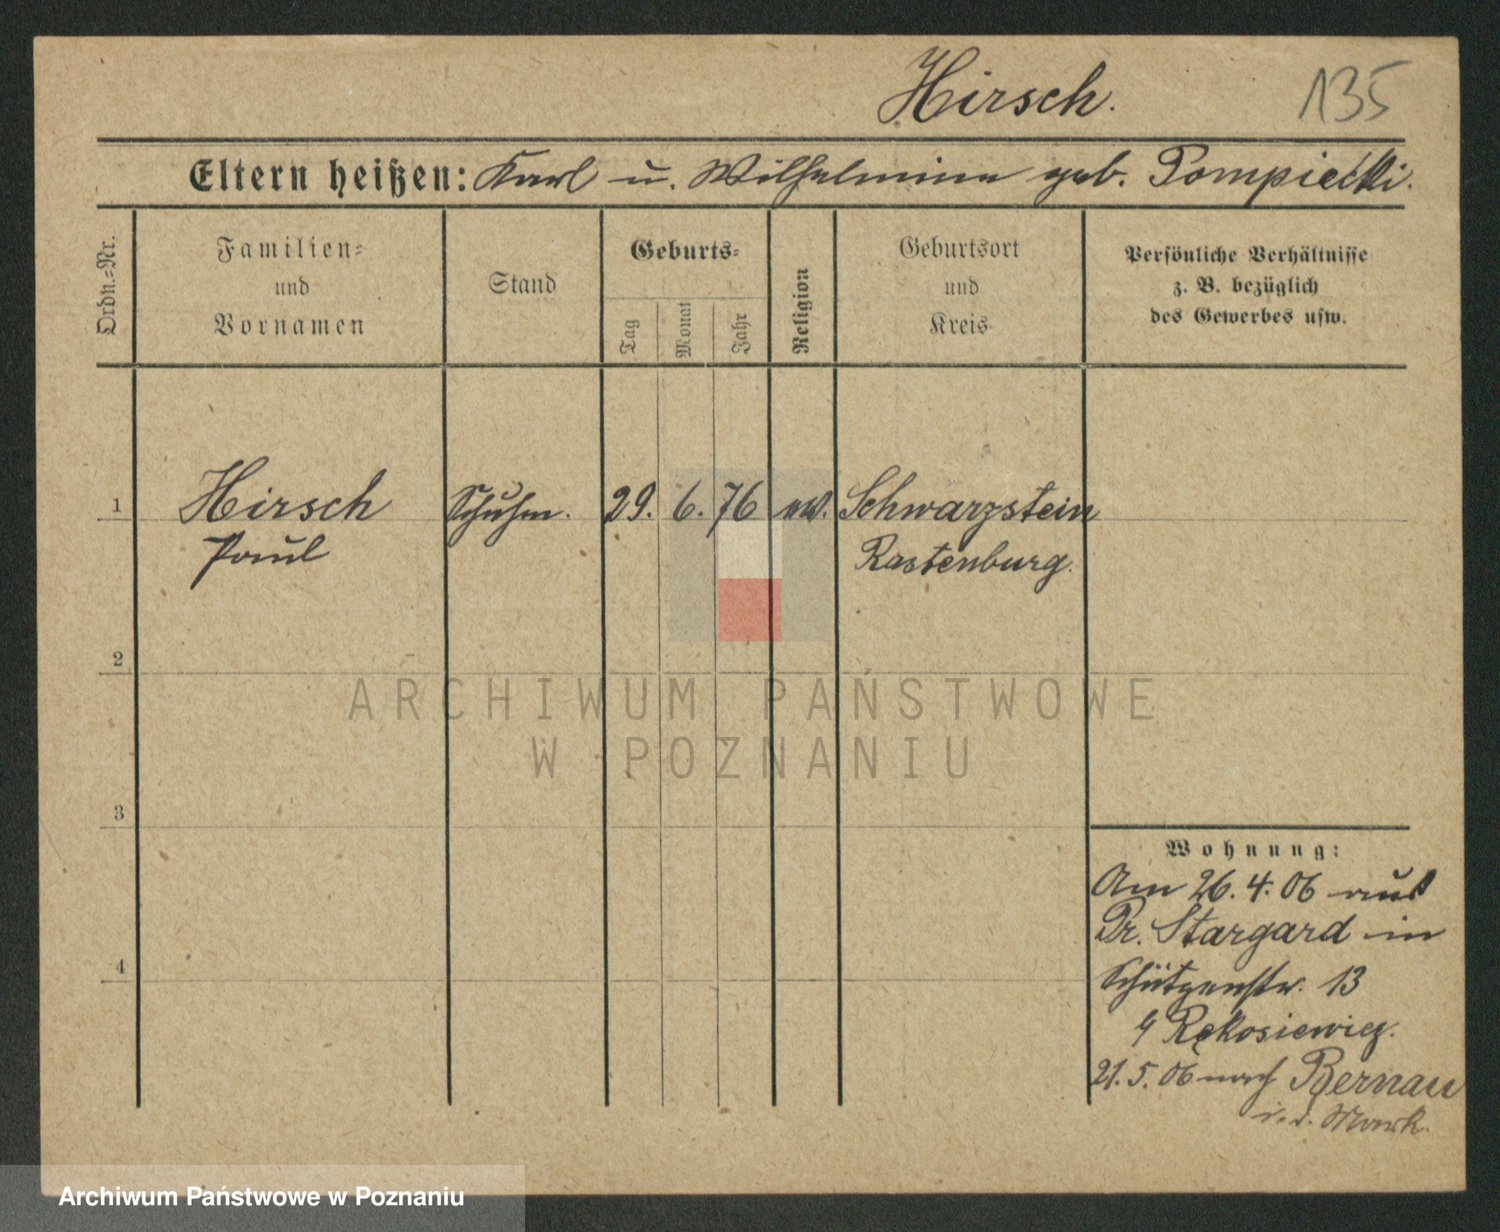 Hirsch. 135
Eltern heißen: Karl u. Wilhelmine geb. Pompiecki.
Ordn.-Nr.
Familien-
und
Vornamen
Stand
Geburts-
Tag
Monat
Jahr
Religion
Geburtsort
und
Kreis
Persönliche Verhältnisse
z. B. bezüglich
des Gewerbes usw.
1 Hirsch Schuhm. 29. 6. 76 ev. Schwarzstein
Paul Rastenburg.
2
3
4
Wohnung:
Am 26.4.06 aus
Pr. Stargard in
Schützenstr. 13
Rękosiewicz.
21.5.06 nach Bernau
i. d. Mark.
ARCHIWUM PAŃSTWOWE
W POZNANIU
Archiwum Państwowe w Poznaniu